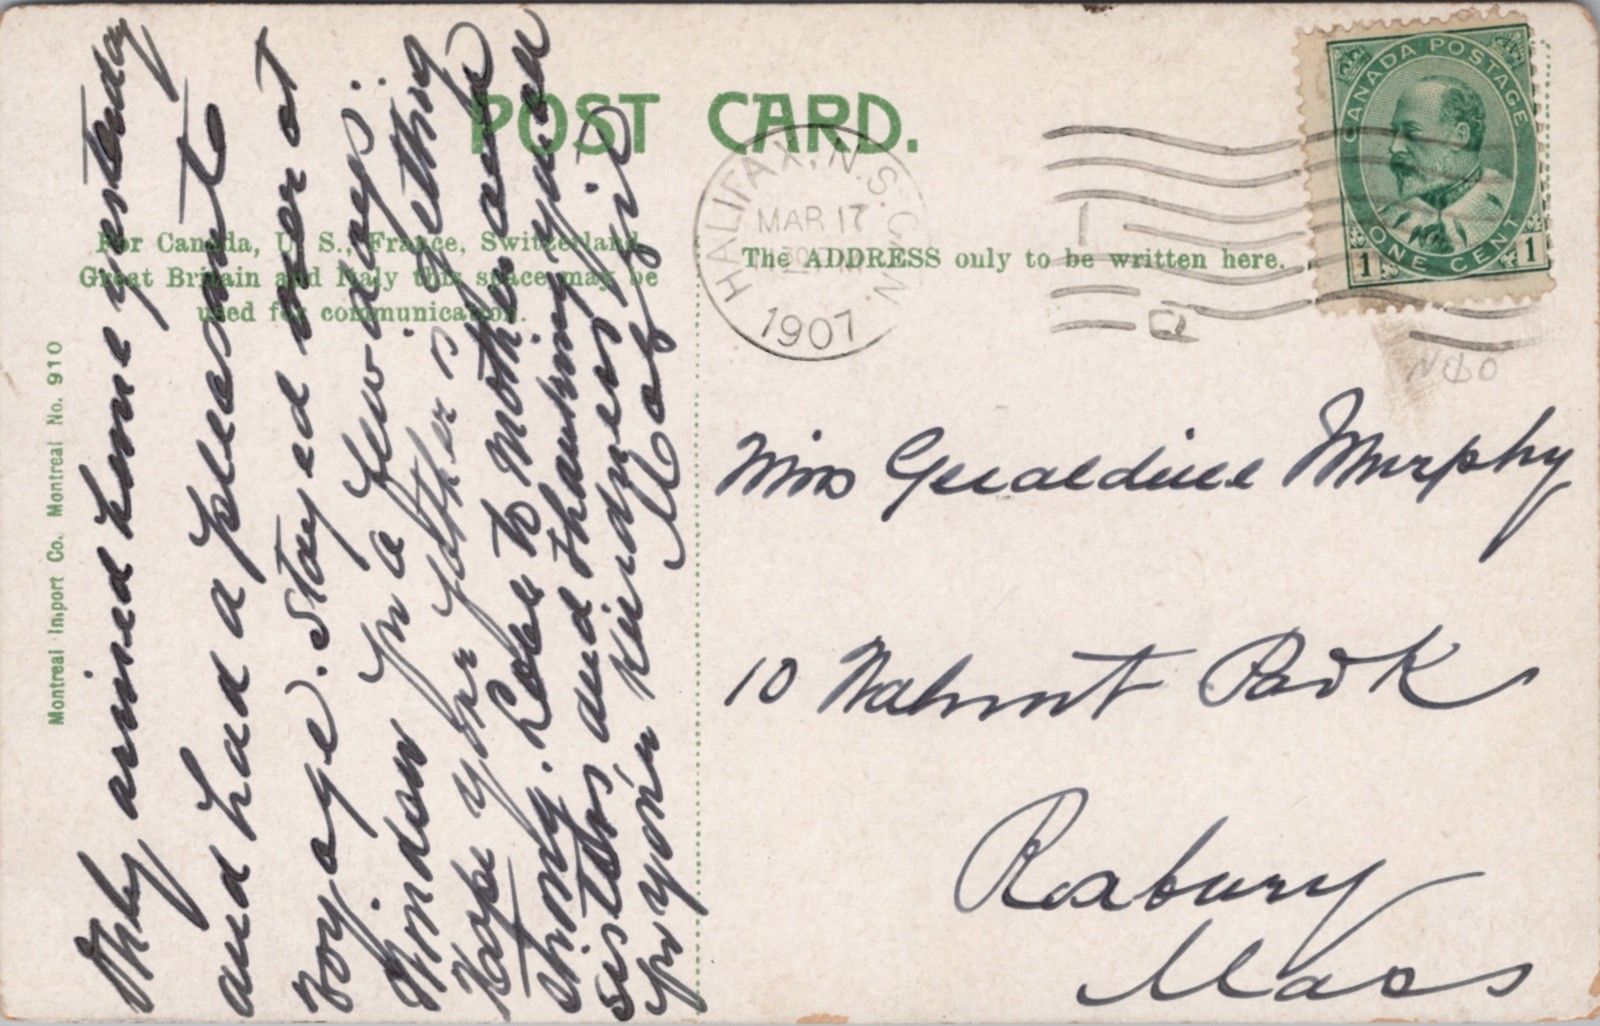 POST CARD.
For Canada, U. S., France, Switzerland,
Great Britain and Italy this space may be
used for communication.
The ADDRESS only to be written here.
Montreal Import Co. Montreal No. 910
HALIFAX, N.S. CAN.
MAR 17
1907
CANADA POSTAGE
ONE CENT
1 1
Only arrived home yesterday
and had a pleasant
voyage. Stayed over at
Windsor for a few days.
Hope your father is getting
strong. Love to Mother and
sisters and thanking you all
for your kindness
Miss Geraldine Murphy
10 Walnut Park
Roxbury
Mass